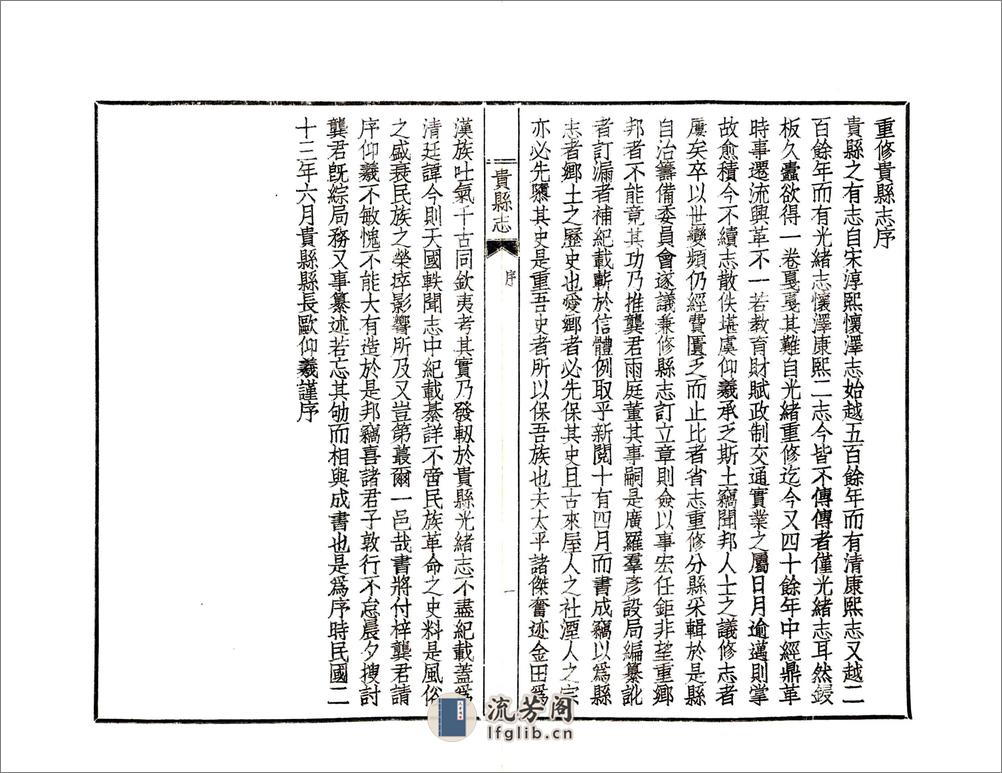 重修貴縣志序
貴縣之有志自宋淳熙懷澤志始越五百餘年而有清康熙志又越二
百餘年而有光緒志懷澤康熙二志今皆不傳傳者僅光緒志耳然鋟
板久蠹欲得一卷戛戛其難自光緒重修迄今又四十餘年中經鼎革
時事遷流興革不一若教育財賦政制交通實業之屬日月逾邁則掌
故愈積今不續志散佚堪虞仰羲承乏斯土竊聞邦人士之議修志者
屢矣卒以世變頻仍經費匱乏而止比者省志重修分縣采輯於是縣
自治籌備委員會遂議兼修縣志訂立章則僉以事宏任鉅非望重鄉
邦者不能竟其功乃推龔君雨庭董其事嗣是廣羅羣彥設局編纂訛
者訂漏者補紀載蘄於信體例取乎新閱十有四月而書成竊以為縣
志者鄉土之歷史也愛鄉者必先保其史且古來屋人之社湮人之宗
亦必先隳其史是重吾史者所以保吾族也夫太平諸傑奮迹金田為
貴縣志
序
一
漢族吐氣千古同欽夷考其實乃發軔於貴縣光緒志不盡紀載蓋為
清廷諱今則天國軼聞志中紀載綦詳不啻民族革命之史料是風俗
之盛衰民族之榮瘁影響所及又豈第蕞爾一邑哉書將付梓龔君請
序仰羲不敏愧不能大有造於是邦竊喜諸君子敦行不怠晨夕搜討
龔君既綜局務又事纂述若忘其劬而相與成書也是為序時民國二
十三年六月貴縣縣長歐仰羲謹序
流芳阁
lfglib.cn